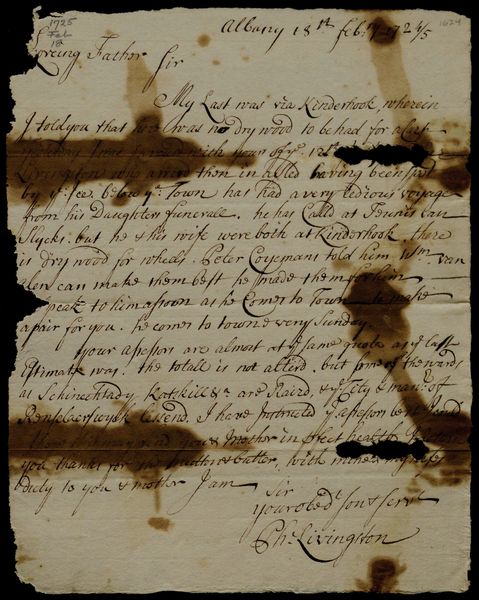 1725
Feb
18
1624
Albany 18th feb:ry 1724/5
Loveing Father
Sir
My Last was via Kinderhook wherein
I told you that was no dry wood to be had for a
with yours of ye. 12th
Livingston who arrived then in a Sled having been
by ye. Ice below ye. Town has had a very tedious voyage
from his Daughters funerall. he has Calld at Teunis van
Slycks. but he & his wife were both at Kinderhook. there
is dry wood for wheels. Peter Coyemans told him Wm. van
alen can make them best he made them for him
speak to him assoon as he Comes to Town to make
a pair for you. he comes to town every Sunday.
your assessors are almost at ye same quote as ye last
Estimate was. the totall is not alterd. but some of the wards
as Schinechtady, Katskill &c are Raisd, & ye City & manr. of
Renselaerswyck lessend. I have ye assessors
you & Mother in
you thanks for the & butter, with mine
duty to you & mother I am
Sir
Your obedt. son & Servt
Ph: Livingston